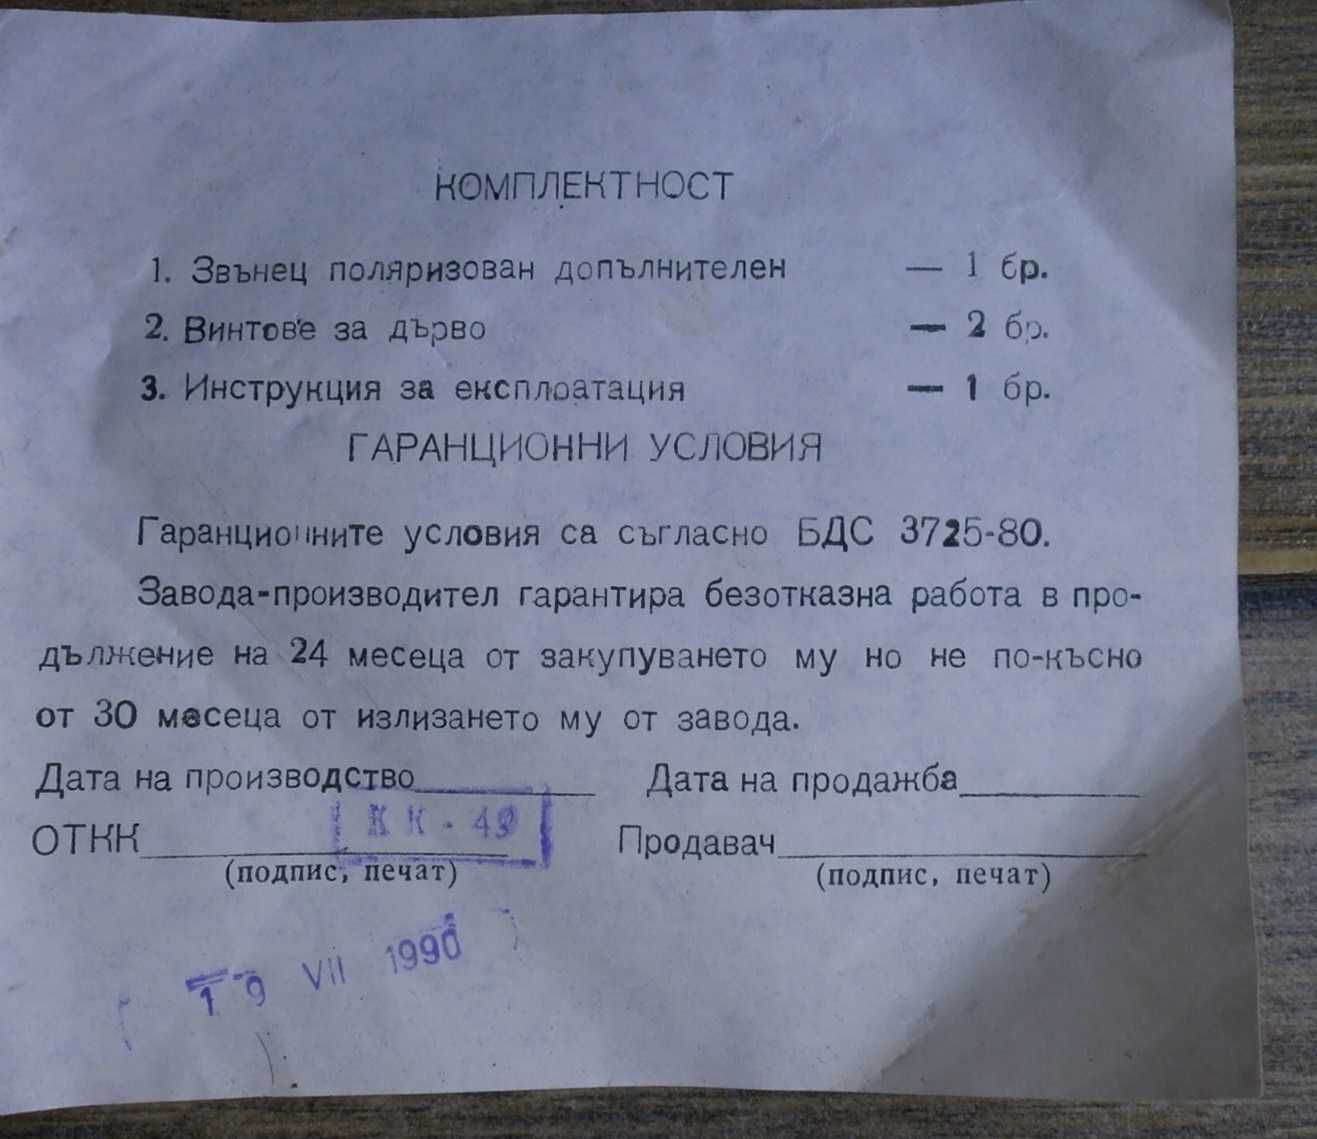 КОМПЛЕКТНОСТ
1. Звънец поляризован допълнителен — 1 бр.
2. Винтове за дърво — 2 бр.
3. Инструкция за експлоатация — 1 бр.
ГАРАНЦИОННИ УСЛОВИЯ
Гаранционните условия са съгласно БДС 3725-80.
Завода-производител гарантира безотказна работа в про-
дължение на 24 месеца от закупуването му но не по-късно
от 30 месеца от излизането му от завода.
Дата на производство Дата на продажба
КК - 49
ОТКК Продавач
(подпис, печат) (подпис, печат)
19 VII 1990